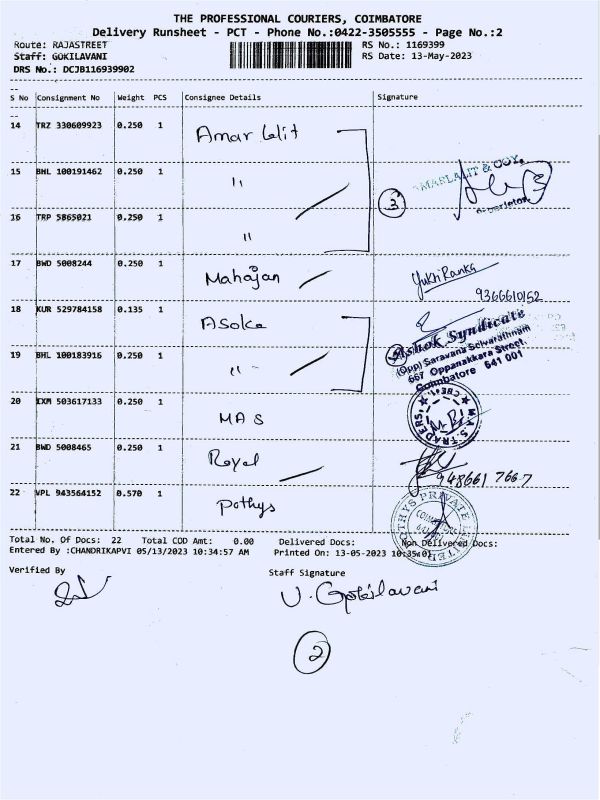 THE PROFESSIONAL COURIERS, COIMBATORE
Delivery Runsheet - PCT - Phone No.:0422-3505555 - Page No.:2
Route: RAJASTREET RS No.: 1169399
Staff: GOKILAVANI RS Date: 13-May-2023
DRS No.: DCJB116939902
S No Consignment No Weight PCS Consignee Details Signature
14 TRZ 330609923 0.250 1 Amar Lalit
15 BHL 100191462 0.250 1 "
MARLALIT & COY.
3
16 TRP 5865021 0.250 1 "
17 BWD 5008244 0.250 1 Mahajan Yukti Ranka
9366610152
18 KUR 529784158 0.135 1 Asoka
Ashok Syndicate
(Opp) Saravana Selvarathnam
667 Oppanakkara Street,
Coimbatore 641 001
19 BHL 100183916 0.250 1 "
20 EXM 503617133 0.250 1 MAS
M.A.S. TRADERS CBE-1
21 BWD 5008465 0.250 1 Royal
948661 7667
22 VPL 943564152 0.570 1 pothys
PRIVATE LIMITED
Total No. Of Docs: 22 Total COD Amt: 0.00 Delivered Docs: Non Delivered Docs:
Entered By :CHANDRIKAPVI 05/13/2023 10:34:57 AM Printed On: 13-05-2023 10:35
Verified By Staff Signature
V. Gokilavani
2